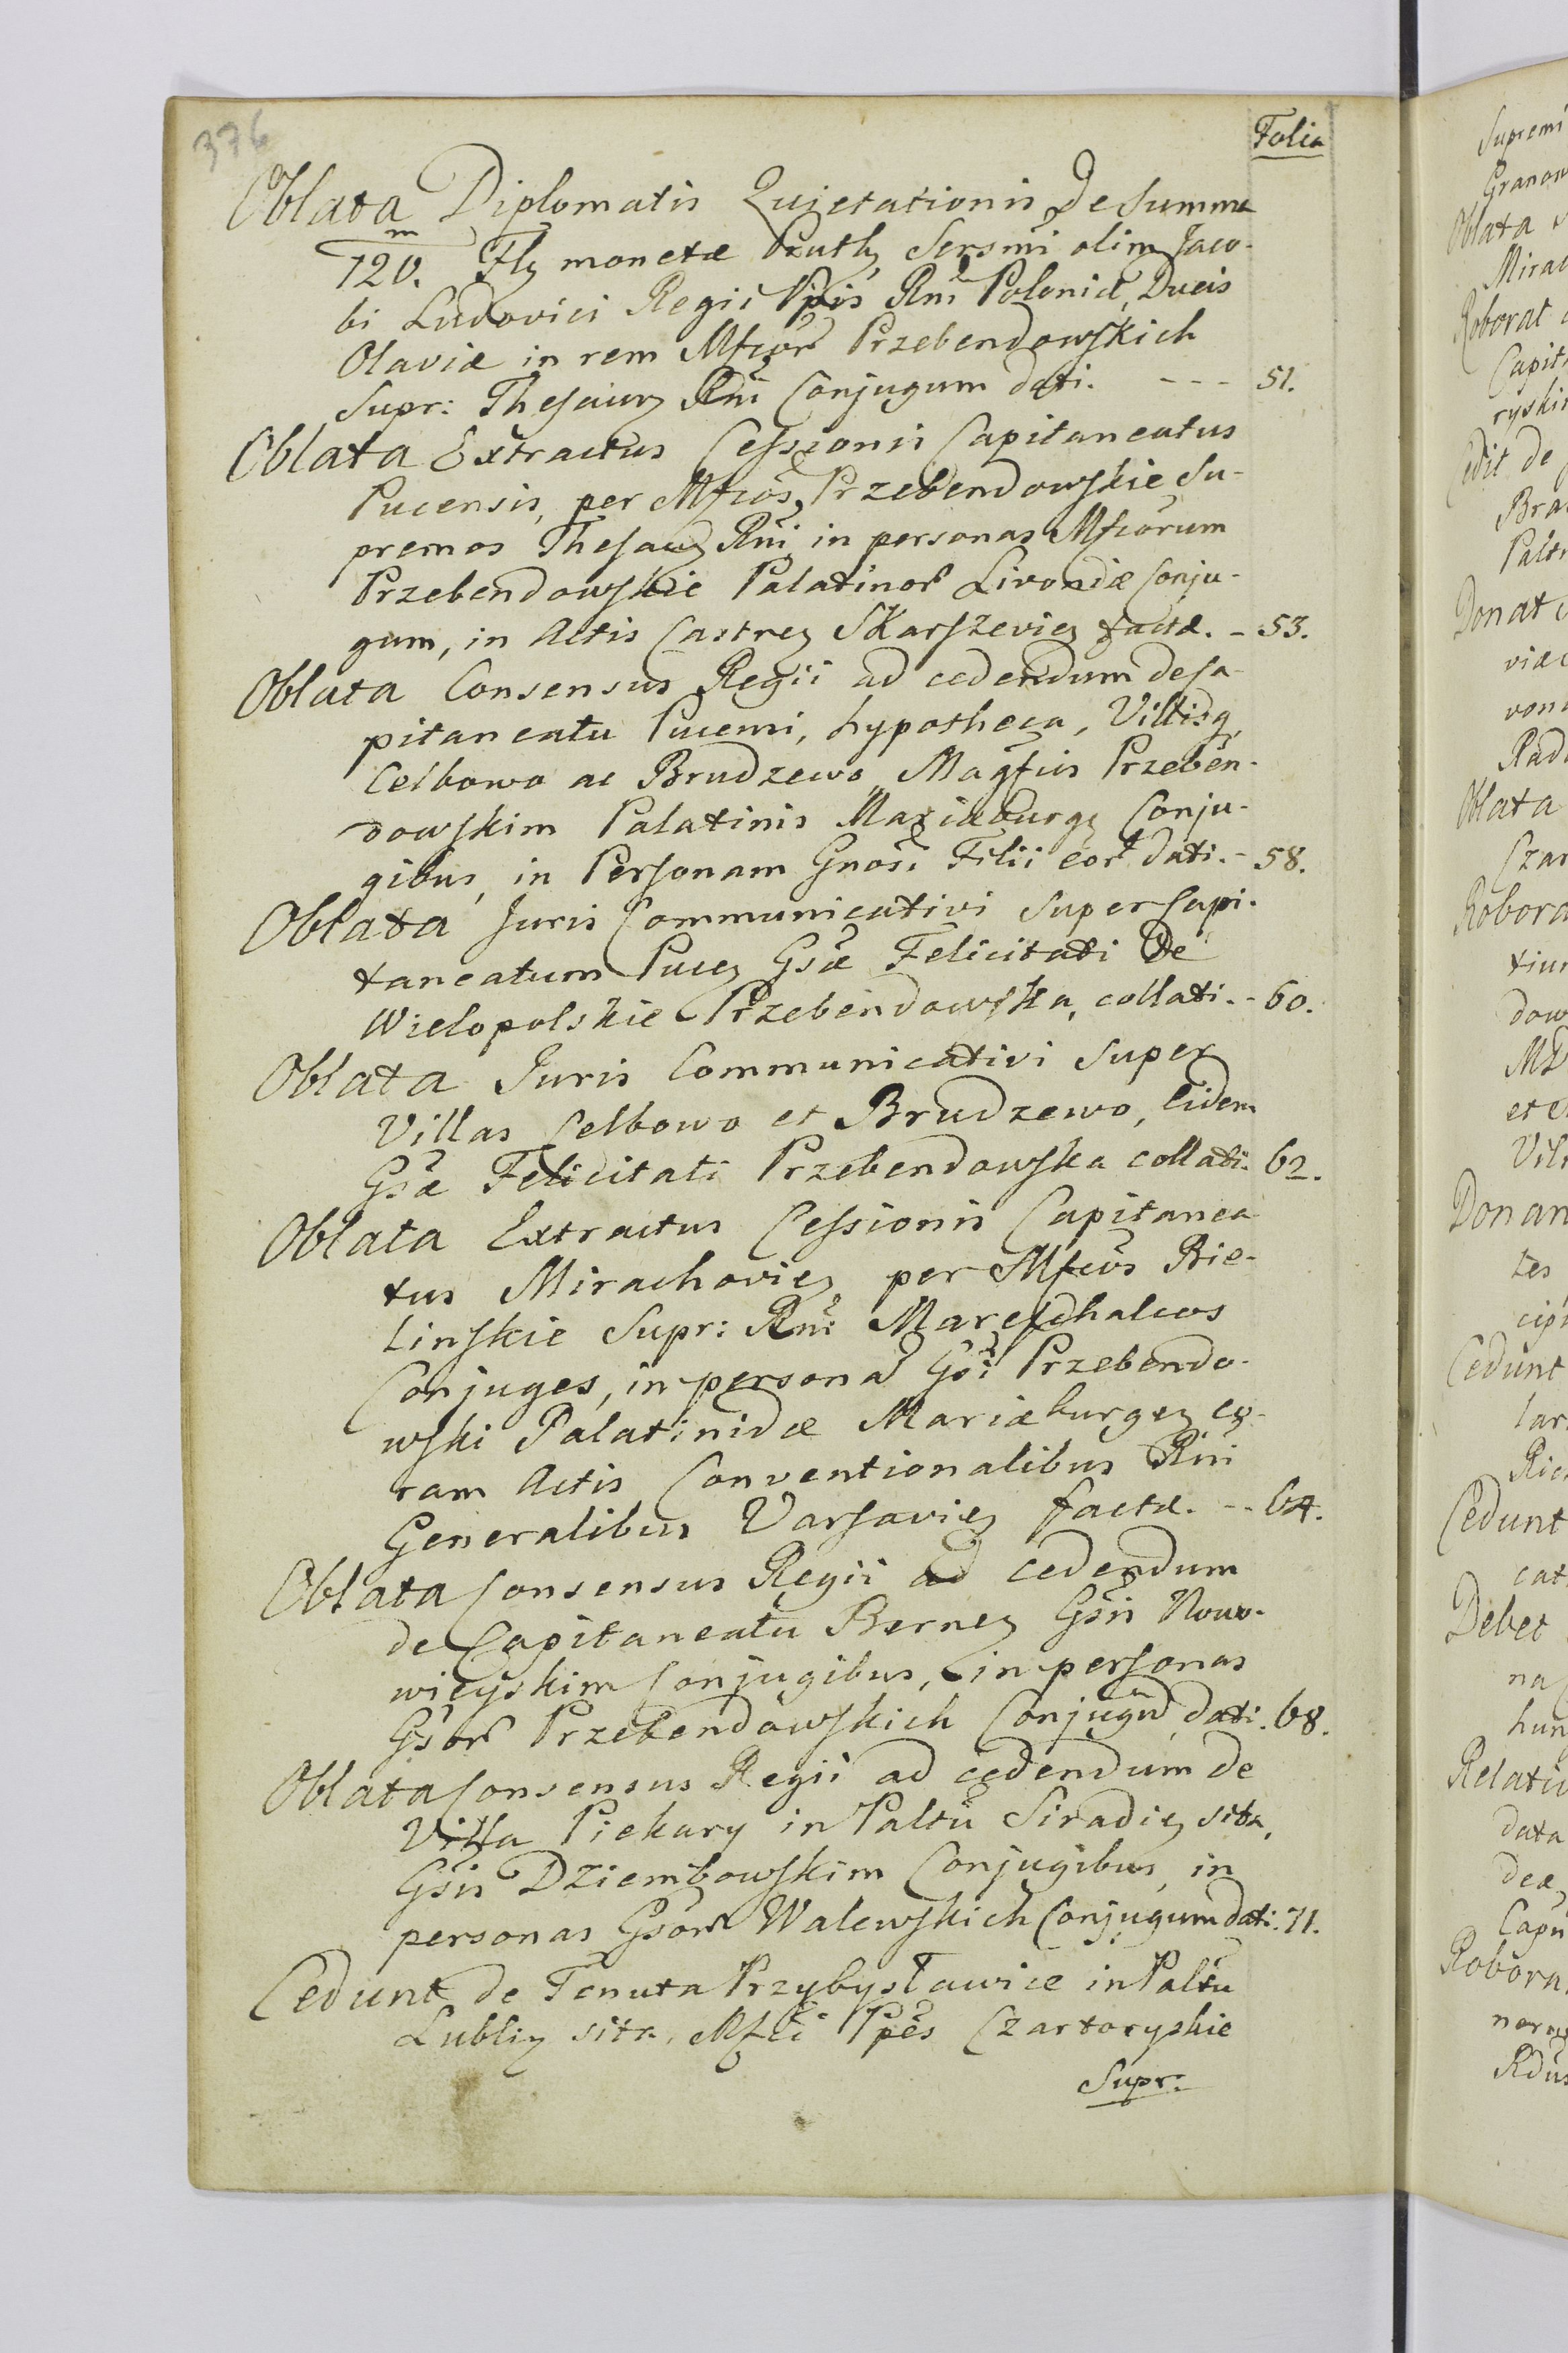 376
Folia
Oblata Diplomatis Quietationis de Summa
m
120. Flꝫ monetæ Pruthꝫ Sersmi olim Jaco-
bi Ludovici Regii Ppis Rni Poloniæ, Ducis
Olaviæ in rem Mfcor Przebendowskich
Supr: Thesaurꝫ Rni Conjugum dati. - - - 51.
Oblata Extractus Cessionis Capitaneatus
Pucensis, per Mfcos Przebendowskie Su-
premos Thesauꝫ Rni in personas Mfcorum
Przebendowskie Palatinor Livoniæ Conju-
gum, in Actis Castreꝫ Skarszevieꝫ factæ. - 53.
Oblata Consensus Regii ad cedendum de Ca-
pitaneatu Pucensi, hypotheca, Villisq,
Celbowo ac Brudzewo, Magfcis Przeben-
dowskim Palatinis Mariæburgꝫ Conju-
gibus, in Personam Gnosi Filii eor dati. - 58.
Oblata Juris Communicativi super Capi-
taneatum Puceꝫ Gsæ Felicitati De
Wielopolskie Przebendowska, collati. - 60.
Oblata Juris Communicativi super
Villas Celbowo et Brudzewo, eidem
Gsæ Felicitati Przebendowska collati. 62.
Oblata Extractus Cessionis Capitanea-
tus Mirachovieꝫ per Mfcos Bie-
linskie Supr: Rni Mareschalcos
Conjuges, in persona Gsi Przebendo-
wski Palatinidæ Mariæburgeꝫ co-
ram Actis Conventionalibus Rni
Generalibus Varsavieꝫ factæ. - - 64.
Oblata Consensus Regii ad cedendum
de Capitaneatu Berneꝫ Gsis Nowo-
wieyskim Conjugibus, in personas
Gsor Przebendowskich Conjugu dati. 68.
Oblata Consensus Regii ad cedendum de
Villa Piekary in Paltu Siradieꝫ sita,
Gsis Dziembowskim Conjugibus, in
personas Gsor Walewskich Conjugum dati. 71.
Cedunt de Tenuta Przybysławice in Paltu
Lublinꝫ sita, Mfci Ppes Czartoryskie
Supr:
Supremi
Granow
Oblata
Mirac
Roborat
Capit
ryski
Cedit de
Bra
Palt
Donat
viæ
von
Rad
Oblata
Czar
Robora
tiu
dow
et
Vil
Donan
tes
cip
Cedunt
lar
Ric
Cedunt
cat
Debet
na
hun
Relatio
data
deæ
Capi
Robora
Rdus